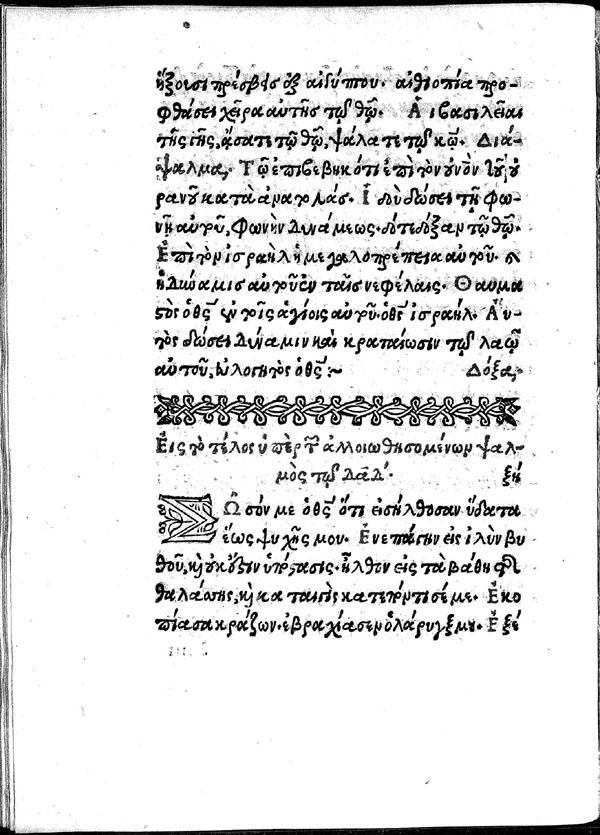 ἥξουσι πρέσβεις ἐξ αἰγύπτου. αἰθιοπία προ-
φθάσει χεῖρα αὐτῆς τῷ θῷ. Αἱ βασιλεῖαι
τῆς γῆς, ᾄσατε τῷ θῷ, ψάλατε τῷ κῷ. Διά-
ψαλμα, Τῷ ἐπιβεβηκότι ἐπὶ τὸν οὐνὸν τοῦ οὐ
ρανοῦ κατὰ ἀνατολάς. Ἰδοὺ δώσει τῇ φω-
νῇ αὐτοῦ, φωνὴν δυνάμεως. δότε δόξαν τῷ θῷ.
Ἐπὶ τὸν ἰσραὴλ ἡ μεγαλοπρέπεια αὐτοῦ. καὶ
ἡ δύναμις αὐτοῦ ἐν ταῖς νεφέλαις. Θαυμα
στὸς ὁ θς ἐν τοῖς ἁγίοις αὐτοῦ. ὁ θς ἰσραήλ. Αὐ-
τὸς δώσει δύναμιν καὶ κραταίωσιν τῷ λαῷ
αὐτοῦ, εὐλογητὸς ὁ θς :~ Δόξα,
Εἰς τὸ τέλος ὑπὲρ τῶν ἀλλοιωθησομένων ψαλ-
μὸς τῷ Δαδ. ξη
Σῶσόν με ὁ θς ὅτι εἰσήλθοσαν ὕδατα
ἕως ψυχῆς μου. Ἐνεπάγην εἰς ἰλὺν βυ
θοῦ, καὶ οὐκ ἔστιν ὑπόστασις. ἦλθον εἰς τὰ βάθη τῆς
θαλάσσης, καὶ καταιγὶς κατεπόντισέ με. Ἐκο
πίασα κράζων. ἐβραγχίασεν ὁ λάρυγξ μου. Ἐξέ